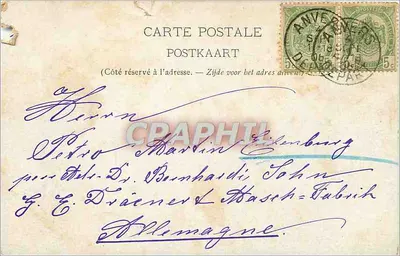 CARTE POSTALE
POSTKAART
(Côté réservé à l'adresse. – Zijde voor het adres
ANVERS
DEPART
5 5
CPARAPHTI
Herrn
Petro Martin Eilenburg
per Adr. Dr. Bernhardi Sohn
G. E. Draenert Masch=Fabrik
Allemagne.